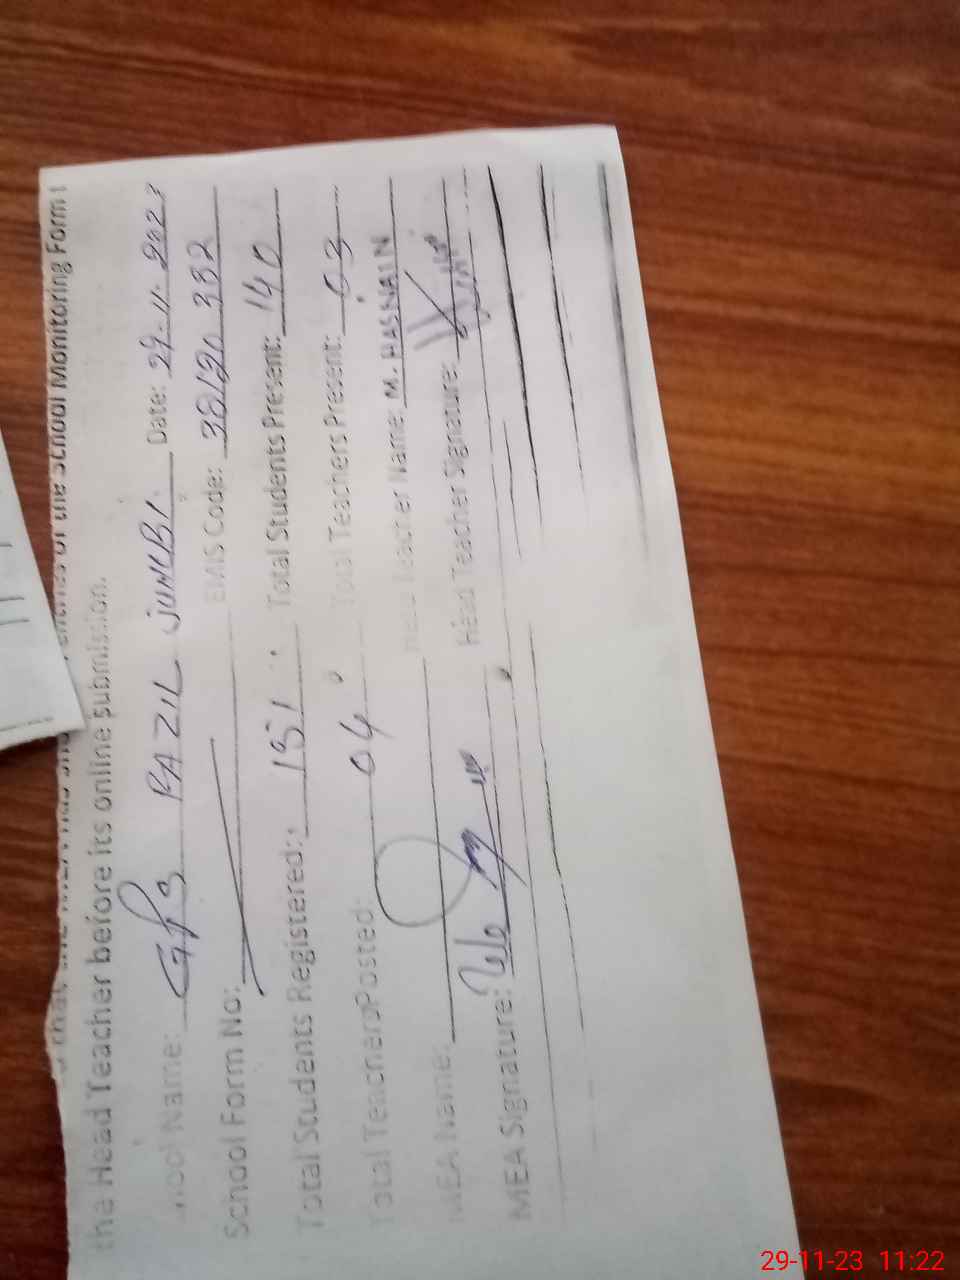 entries of the School Monitoring Form t
the Head Teacher before its online submission.
School Name: GPS RAZIL JUNUBI. Date: 29-11-2023
School Form No: EMIS Code: 38120 382
Total Students Registered: 151 Total Students Present: 140
Total Teachers Posted: 04 Total Teachers Present: 03
MEA Name: Head Teacher Name: M. HASNAIN
MEA Signature: Head Teacher Signature:
29-11-23 11:22